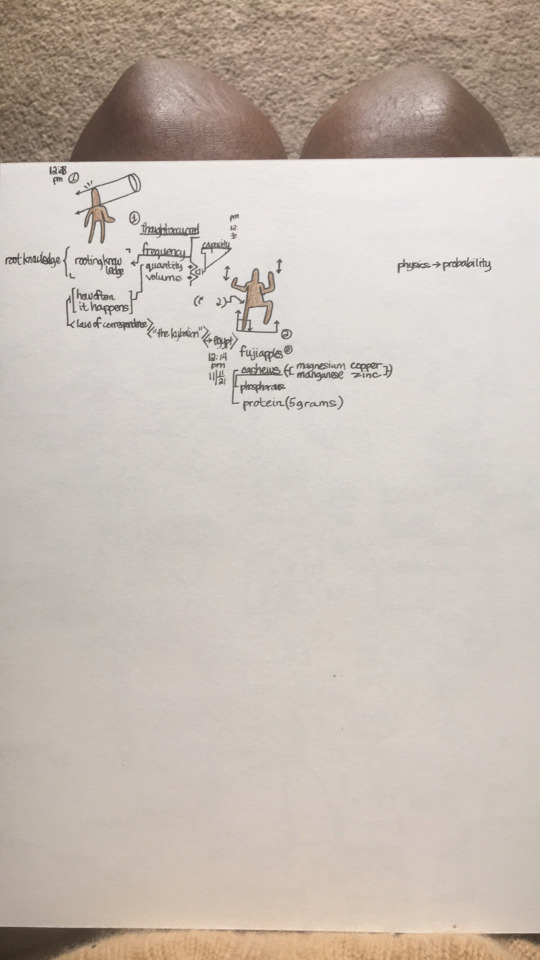 12:28
pm ①
① thought occurred
pm
12:
frequency
capacity
root knowledge { rooting know
ledge
quantity
volume
physics → probability
[how often
it happens]
law of correspondence >> "the kybalion" >> → egypt
②
12:14
pm
11/11
/21
fuji apples
cashews {[ magnesium copper
manganese zinc ]}
phosphorous
protein (5 grams)